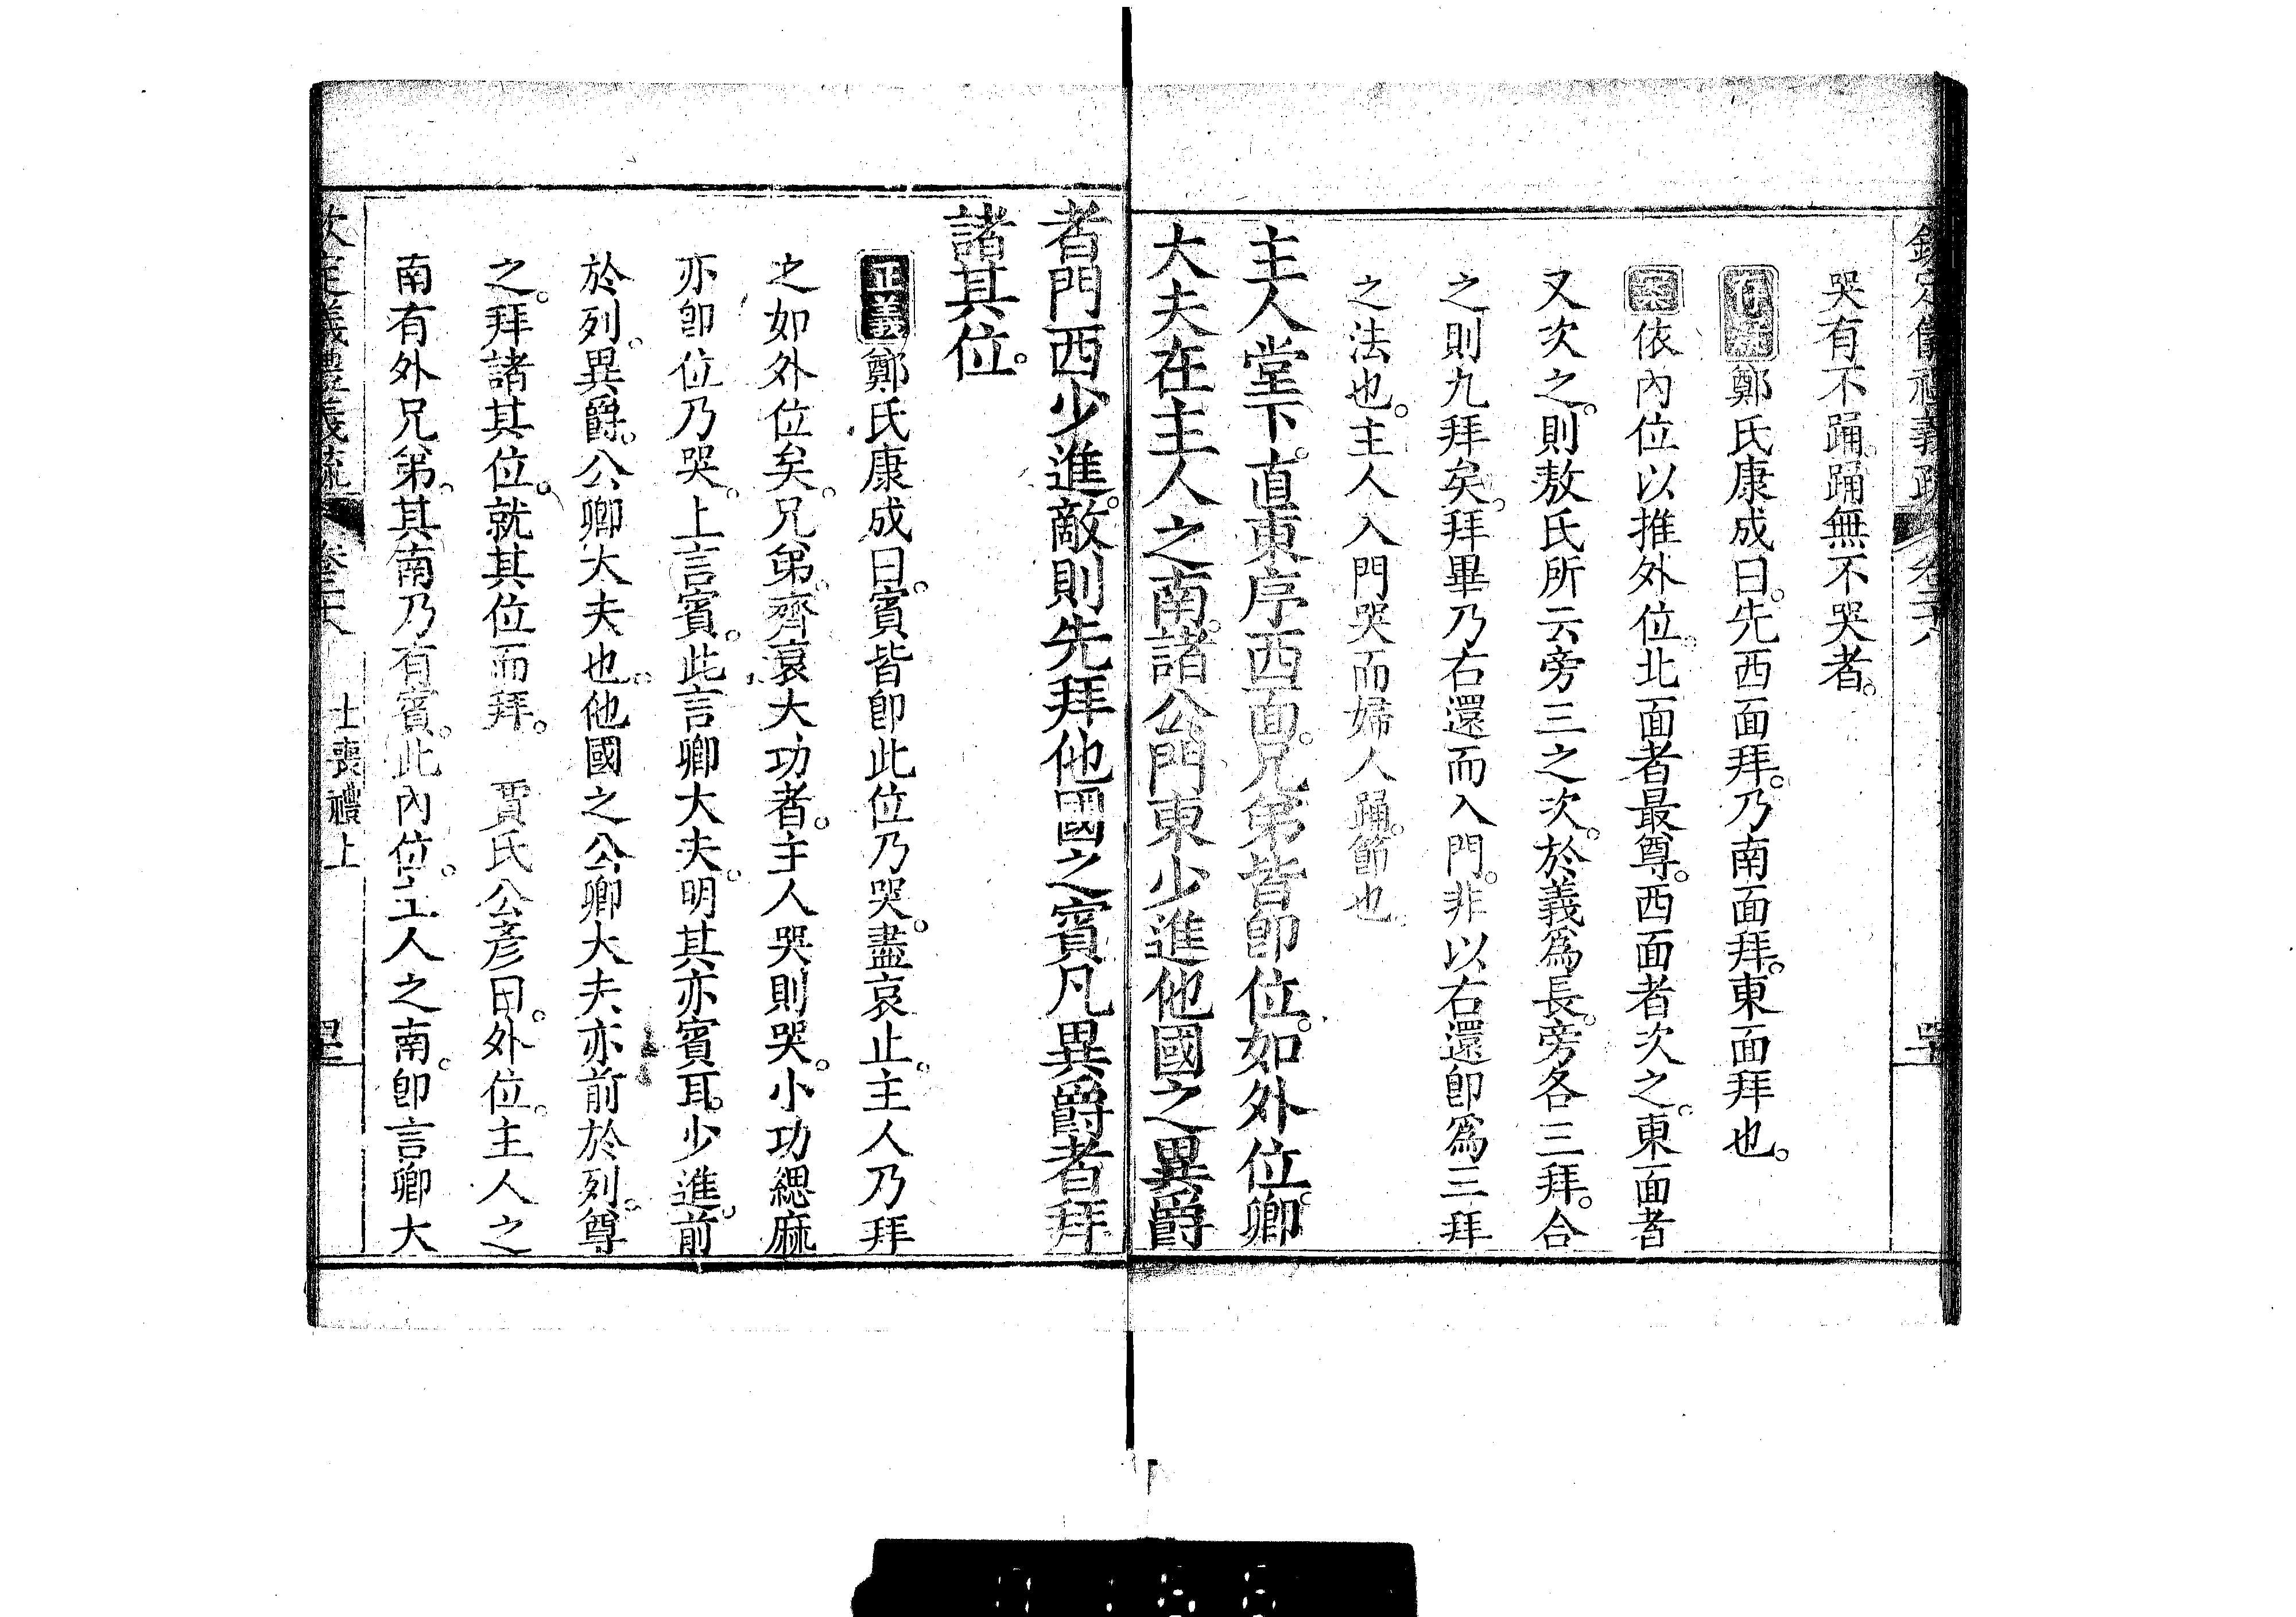 欽定儀禮義疏 卷二十八
哭有不踊。踊無不哭者。
存疑鄭氏康成曰。先西面拜。乃南面拜。東面拜也。
案依內位以推外位。北面者最尊。西面者次之。東面者
又次之。則敖氏所云旁三之次。於義爲長。旁各三拜。合
之則九拜矣。拜畢乃右還而入門。非以右還卽爲三拜
之法也。主人入門哭而婦人踊。節也
主人堂下。直東序西面。兄弟皆卽位。如外位。卿
大夫在主人之南。諸公門東少進他國之異爵
者門西少進。敵則先拜他國之賓凡異爵者拜
諸其位。
正義鄭氏康成曰。賓皆卽此位乃哭。盡哀止。主人乃拜
之如外位矣。兄弟。齊衰大功者。主人哭則哭。小功緦麻
亦卽位乃哭。上言賓。此言卿大夫。明其亦賓耳。少進。前
於列。異爵。公卿大夫也。他國之公卿大夫亦前於列。尊
之。拜諸其位。就其位而拜。 賈氏公彥曰。外位。主人之
南有外兄弟。其南乃有賓。此內位。主人之南。卽言卿大
欽定儀禮義疏 卷二十八 士喪禮上